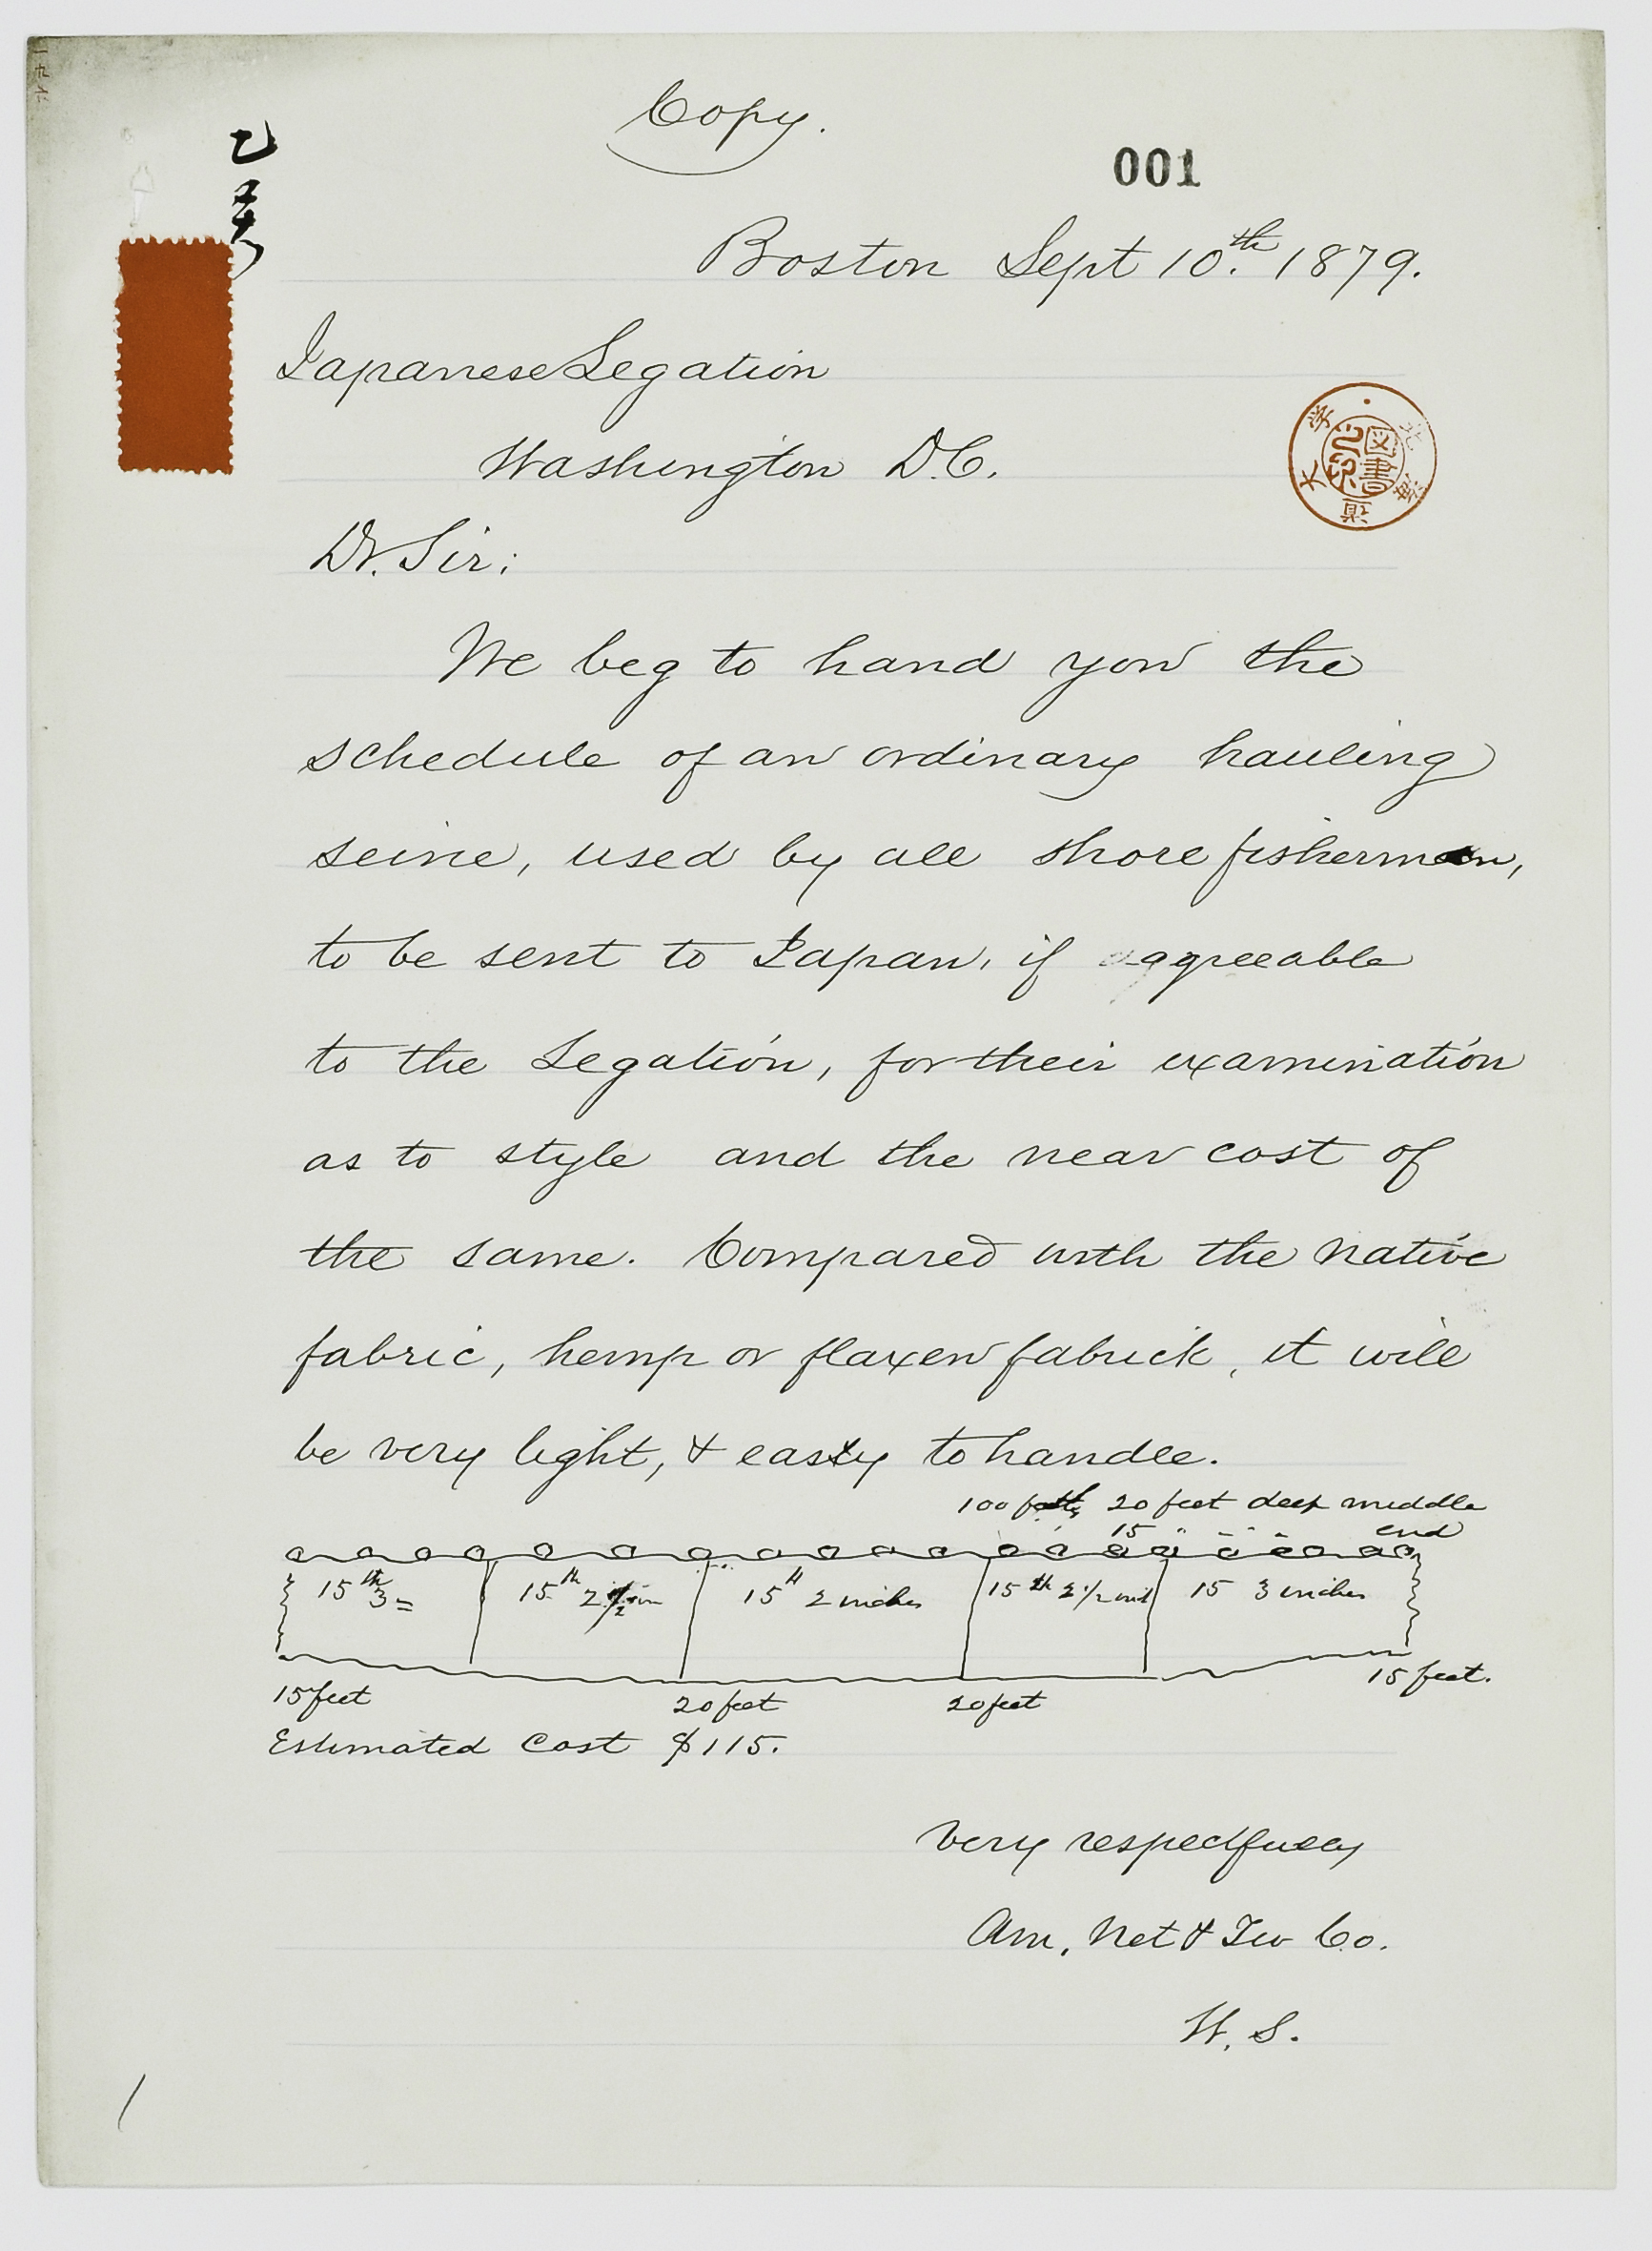 Copy.
001
Boston Sept 10th. 1879.
Japanese Legation
Washington D.C.
Dr. Sir;
We beg to hand you the
schedule of an ordinary hauling
seine, used by all shore fishermen,
to be sent to Japan, if aggreeable
to the Legation, for their examination
as to style and the near cost of
the same. Compared with the native
fabric, hemp or flaxen fabrick, it will
be very light, & easy to handle.
100 20 feet deep middle
15 " " " end
15th 3=
15th 2 1/2 in
15" 2 inches
15th 2 1/2 inch
15 3 inches
15 feet
20 feet
20 feet
15 feet.
Estimated Cost $115.
Very respectfully
Am. Net & Tw Co.
W. S.
乙
圖書之印
北海道大学